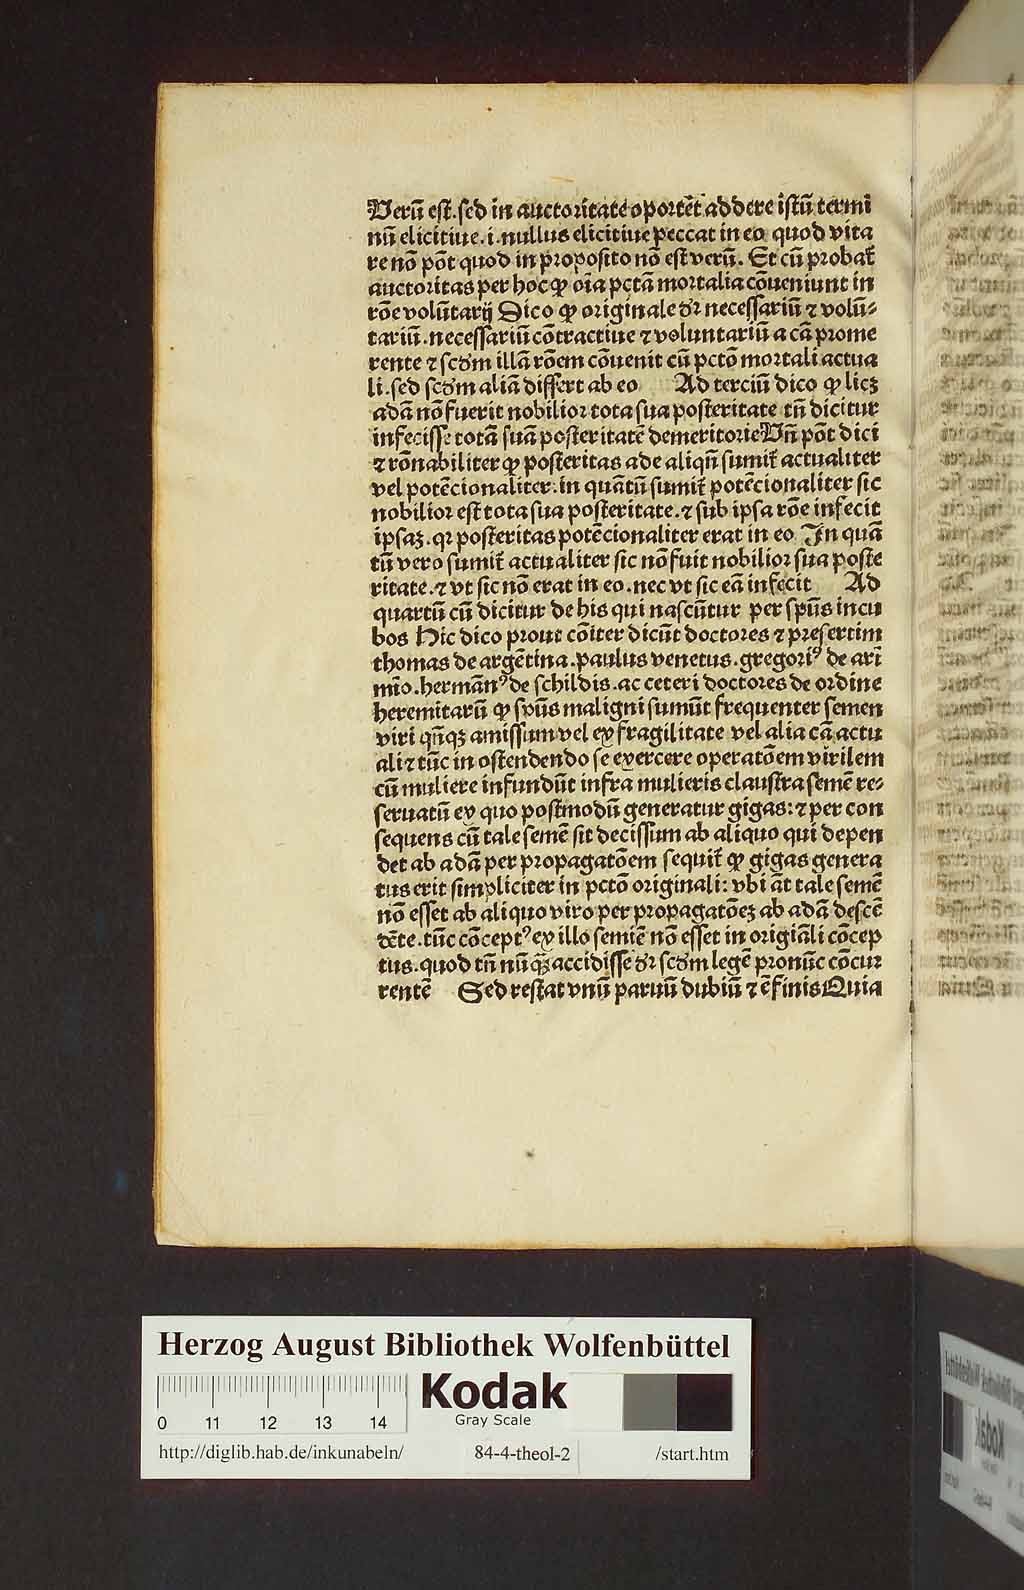 Verū est. sed in auctoritate oportēt addere istū termi
nū elicitiue .i. nullus elicitiue peccat in eo quod vita
re nō pōt quod in proposito nō est verū. Et cū probat᷑
auctoritas per hoc ꝙ oīa pctā mortalia cōueniunt in
rōe volūtarij Dico ꝙ originale dr̄ necessariū ⁊ volū⸗
tariū. necessariū cōtractiue ⁊ voluntariū a cā prome
rente ⁊ scdm illā rōem cōuenit cū pctō mortali actua
li. sed scdm aliā differt ab eo Ad terciū dico ꝙ licꝫ
adā nō fuerit nobilior tota sua posteritate tn̄ dicitur
infecisse totā suā posteritatē demeritorie Vn̄ pōt dici
⁊ rōnabiliter ꝙ posteritas ade aliqn̄ sumit᷑ actualiter
vel potēcionaliter. in quātū sumit᷑ potēcionaliter sic
nobilior est tota sua posteritate. ⁊ sub ipsa rōe infecit
ipsaꝫ. qr posteritas potēcionaliter erat in eo In quā
tū vero sumit᷑ actualiter sic nō fuit nobilior sua poste
ritate. ⁊ vt sic nō erat in eo. nec vt sic eā infecit Ad
quartū cū dicitur de his qui nascūtur per spūs incu
bos Hic dico prout cōiter dicūt doctores ⁊ presertim
thomas de argētina. paulus venetus. gregoriꝰ de ari
mīo. hermānꝰ de schildis. ac ceteri doctores de ordine
heremitarū ꝙ spūs maligni sumūt frequenter semen
viri qn̄qꝫ amissum vel ex fragilitate vel alia cā actu
ali ⁊ tūc in ostendendo se exercere operatōem virilem
cū muliere infundūt infra mulieris claustra semē re⸗
seruatū ex quo postmodū generatur gigas: ⁊ per con
sequens cū tale semē sit decissum ab aliquo qui depen
det ab adā per propagatōem sequit᷑ ꝙ gigas genera
tus erit simpliciter in pctō originali: vbi āt tale semē
nō esset ab aliquo viro per propagatōeꝫ ab adā descē
dēte. tūc cōceptꝰ ex illo semiē nō esset in origiāli cōcep
tus. quod tn̄ nūq̄ꝫ accidisse dr̄ scdm legē pronūc cōcur
rentē Sed restat vnū paruū dubiū ⁊ ē finis Quia
Herzog August Bibliothek Wolfenbüttel
Kodak
Gray Scale
0 11 12 13 14
http://diglib.hab.de/inkunabeln/ 84-4-theol-2 /start.htm